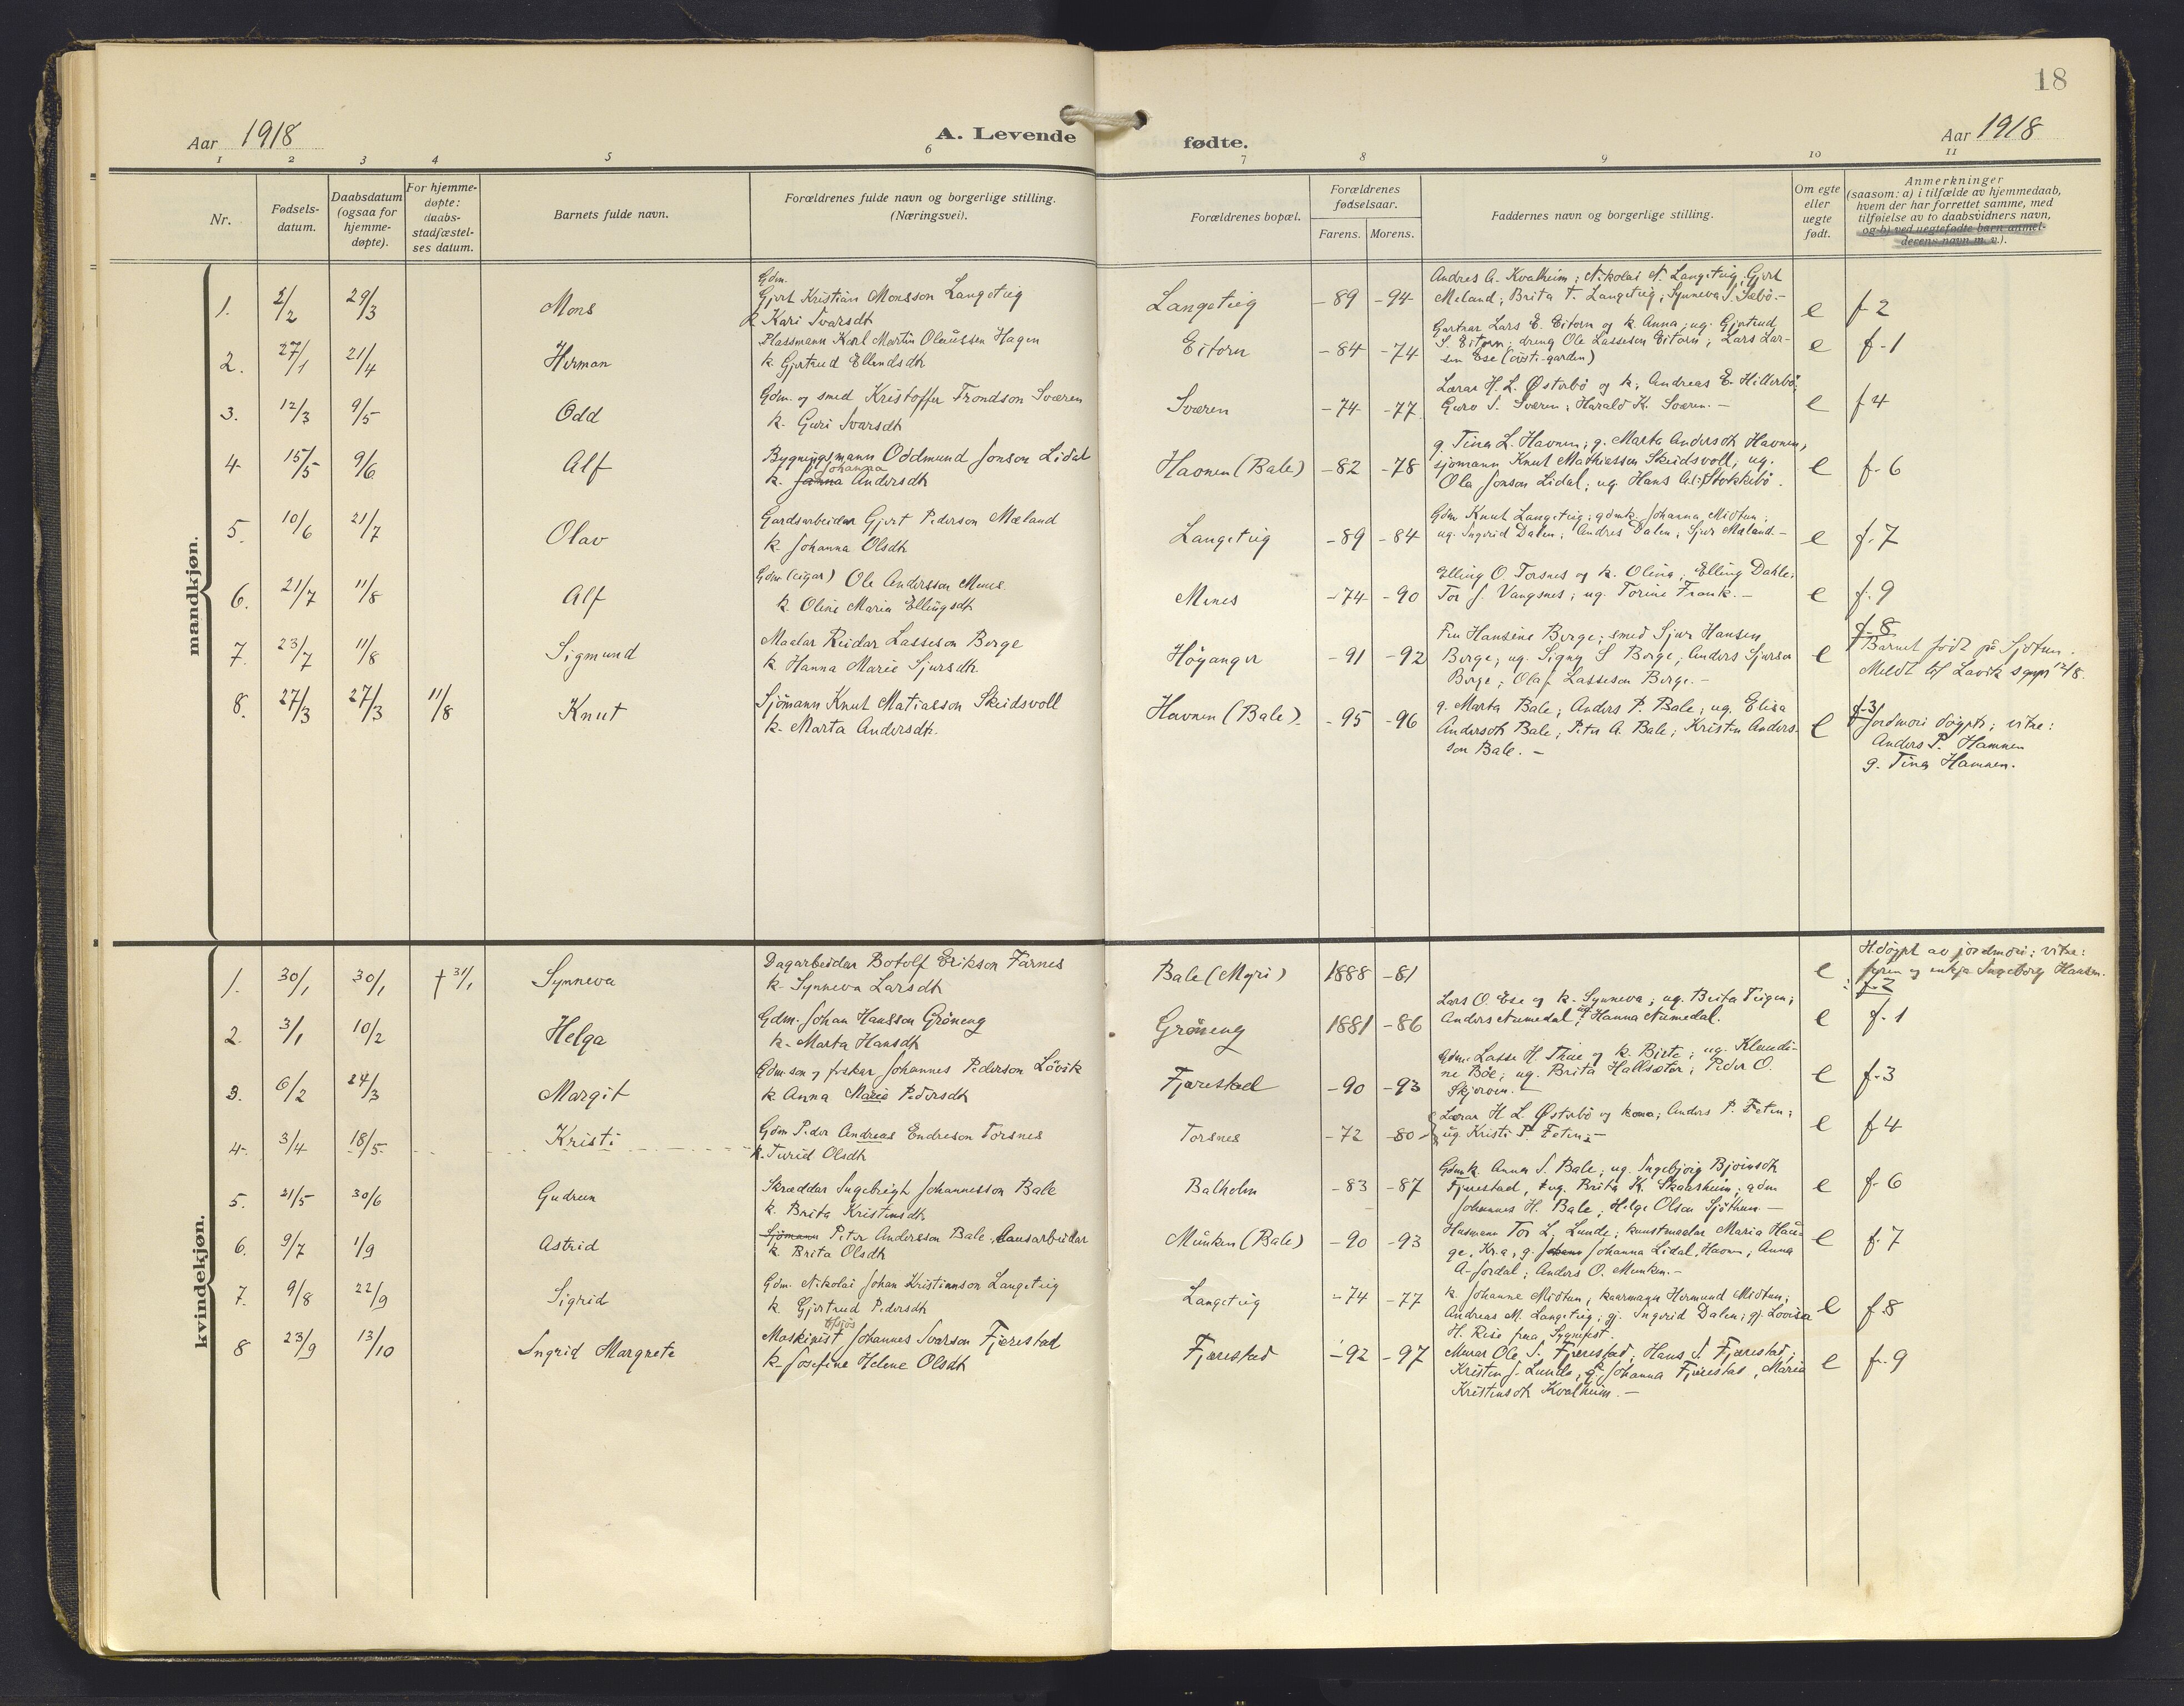 18
Aar 1918
A. Levende fødte.
Aar 1918
1 2 3 4 5 6 7 8 9 10 11
Nr.
Fødsels-
datum.
Daabsdatum
(ogsaa for
hjemme-
døpte).
For hjemme-
døpte:
daabs-
stadfæstel-
ses datum.
Barnets fulde navn.
Forældrenes fulde navn og borgerlige stilling.
(Næringsvei).
Forældrenes bopæl.
Forældrenes
fødselsaar.
Farens. Morens.
Faddernes navn og borgerlige stilling.
Om egte
eller
uegte
født.
Anmerkninger
(saasom: a) i tilfælde av hjemmedaab,
hvem der har forrettet samme, med
tilføielse av to daabsvidners navn,
og b) ved uegtefødte barn anmel-
derens navn m. v.).
mandkjøn.
1. 2/2 29/3 Mons
Gdm.
Gjert Kristian Monsson Langeteig
k Kari Ivarsdtr
Langeteig -89 -94
Andres A. Kvalheim; Nikolai N. Langeteig, Gjert
Meland; Brita T. Langeteig; Synneva S. Sæbö.-
e f 2
2. 27/1 21/4 Herman
Plassmann Karl Martin Olaussen Hagen
k. Gjertrud Ellendsdtr
Eitorn -84 -74
Gartnar Lars E. Eitorn og k. Anna; ug. Gjertrud
S. Eitorn; dreng Ole Lasseson Eitorn; Lars Lar-
sen Ese
e f. 1
3. 12/3 9/5 Odd
Gdm. og smed Kristoffer Trondson Sværen
k. Guri Ivarsdtr
Sværen -74 -77
Lærar H. L. Østerbö og k; Andreas E. Hillerbö;
Guro S. Sværen; Harald K. Sværen. -
e f 4
4 15/5 9/6 Alf
Bygningsmann Oddmund Jonson Lidal
Johanna
k. Janna Andersdtr
Havnen (Bale) -82 -78
g. Tina L. Havnen; g. Marta Andersdtr Havnen;
sjömann Knut Mathiasson Skeidsvoll; ug.
Ola Jonson Lidal; ug. Hans Al. Stokkebö.
e f. 6
5. 10/6 21/7 Olav
Gardsarbeidar Gjert Pederson Mæland
k. Johanna Olsdtr
Langeteig -89 -84
Gdm Knut Langeteig; gdmk. Johanna Midtun;
ug. Ingerid Dalen; Andres Dalen; Sjur Mæland.-
e f. 7
6. 21/7 11/8 Alf
Gdm (eigar) Ole Andersson Menes
k. Oline Maria Ellingsdtr
Menes -74 -90
Elling O. Torsnes og k. Olina; Elling Dahle;
Tor J. Vangsnes; ug. Torine Frank. -
e f. 9
7. 23/7 11/8 Sigmund
Maalar Reidar Lasseson Berge
k Hanna Marie Sjursdtr.
Höyanger -91 -92
Fru Hansine Berge; smed Sjur Hansen
Berge; ug. Signy S Berge; Anders Sjurson
Berge; Olaf Lasseson Berge. -
e f. 8
Barnet födt på Sjötun.
Meldt til Lavik spgm 12/8.
8. 27/3 27/3 11/8 Knut
Sjömann Knut Matiasson Skeidsvoll
k. Marta Andersdtr.
Havnen (Bale) -95 -96
g. Marta Bale; Anders P. Bale; ug. Elisa
Andersdtr Bale; Peter A. Bale; Kristen Anders-
son Bale. -
e f-3
Jordmori döypte; vitne:
Anders P. Hamnen
g. Tina Hamnen.
kvindekjøn.
1. 30/1 30/1 † 31/1 Synneva
Dagarbeidar Botolf Erikson Farnes
k. Synneva Larsdtr
Bale (Myri) 1888 -81
e
H.döypt av jordmori; vitne:
faren og enkja Ingeborg Hansen.
f-2
2. 3/1 10/2 Helga
Gdm. Johan Hansson Gröneng
k. Marta Hansdtr
Gröneng 1881 -86
Lars O. Ese og k. Synneva; ug. Brita Teigen;
Anders Numedal; Hanna Numedal.
e f. 1
3. 6/2 24/3 Margit
Gdm.son og fiskar Johannes Pederson Lövik
k Anna Marie Pedersdtr
Fjærestad -90 -93
Gdm. Lasse H. Thue og k. Birte; ug. Klaudi-
ne Böe; ug. Brita Hallsæter; Peder O.
Skjerven. -
e f. 3
4. 3/4 18/5 Kristi
Gdm Peder Andreas Endreson Torsnes
k. Turid Olsdtr
Torsnes -72 -80
Lærar H L. Østerbö og kona; Anders P. Feten;
ug. Kristi P. Feten; -
e f 4
5. 21/5 30/6 Gudrun
Skræddar Ingebrigt Johannesson Bale
k. Brita Kristensdtr
Balholm -83 -87
Gdmk. Anna S. Bale; ug. Ingebjörg Björnsdtr
Fjærestad, ug. Brita K. Skaasheim; gdm
Johannes H. Bale; Helge Olson Sjöthun. -
e f. 6
6. 9/7 1/9 Astrid
Sjömann Peter Andersson Bale, dansarbeidar
k Brita Olsdtr
Munken (Bale) -90 -93
Husmann Tor L. Lunde; kunstmaalar Maria Hau-
ge, Kr.a; g. Johanna Lidal, Havnen; Anna
A. Jordal; Anders O. Munken. -
e f. 7
7. 9/8 22/9 Sigrid
Gdm. Nikolai Johan Kristianson Langeteig
k. Gjertrud Pedersdtr
Langeteig -74 -77
k. Johanne Midtun, kaarmann Hermund Midtun;
Andreas M. Langeteig; gj. Ingerid Dalen; gj. Lovisa
H. Risö fraa Sygnefest.
e f. 8
8 23/9 13/10 Ingrid Margrete
t/sjös
Maskinist Johannes Ivarson Fjærestad
k. Josefine Helene Olsdtr
Fjærestad -92 -97
Murar Ole S. Fjærestad; Hans S. Fjærestad;
Kristen J. Lunde; g. Johanna Fjærestad, Maria
Kristensdtr Kvalheim. -
e f. 9